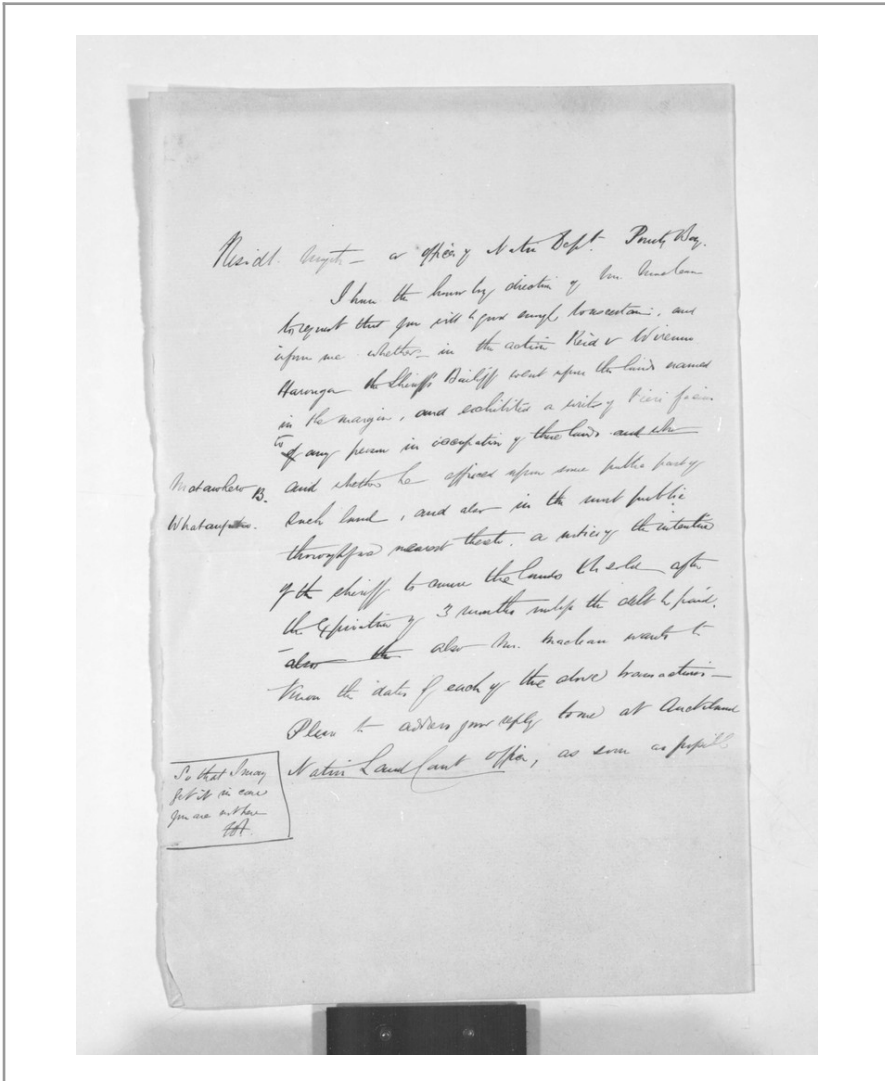 Residt. Magte — or officer of Native Dept. Poverty Bay.
I have the honor by direction of Mr. Maclean
to request that you will be good enough to ascertain, and
inform me whether — in the action Reid v Wiremu
the Sheriff's Bailiff went upon the lands named
in the margin, and exhibited a writ of Fieri facias
to any person in occupation of those lands and who
Matawhero B.
and whether he affixed upon some public part of
such land, and also in the most public
thoroughfare nearest thereto. a notice of the intention
of the sheriff to cause the lands to be sold after
the expiration of 3 months unless the debt be paid.
also the also Mr. Maclean wants to
know the dates of each of the above transactions —
Please to address your reply to me at Auckland
Native Land Court Office, as soon as possible
So that I may
get it in case
you are not here